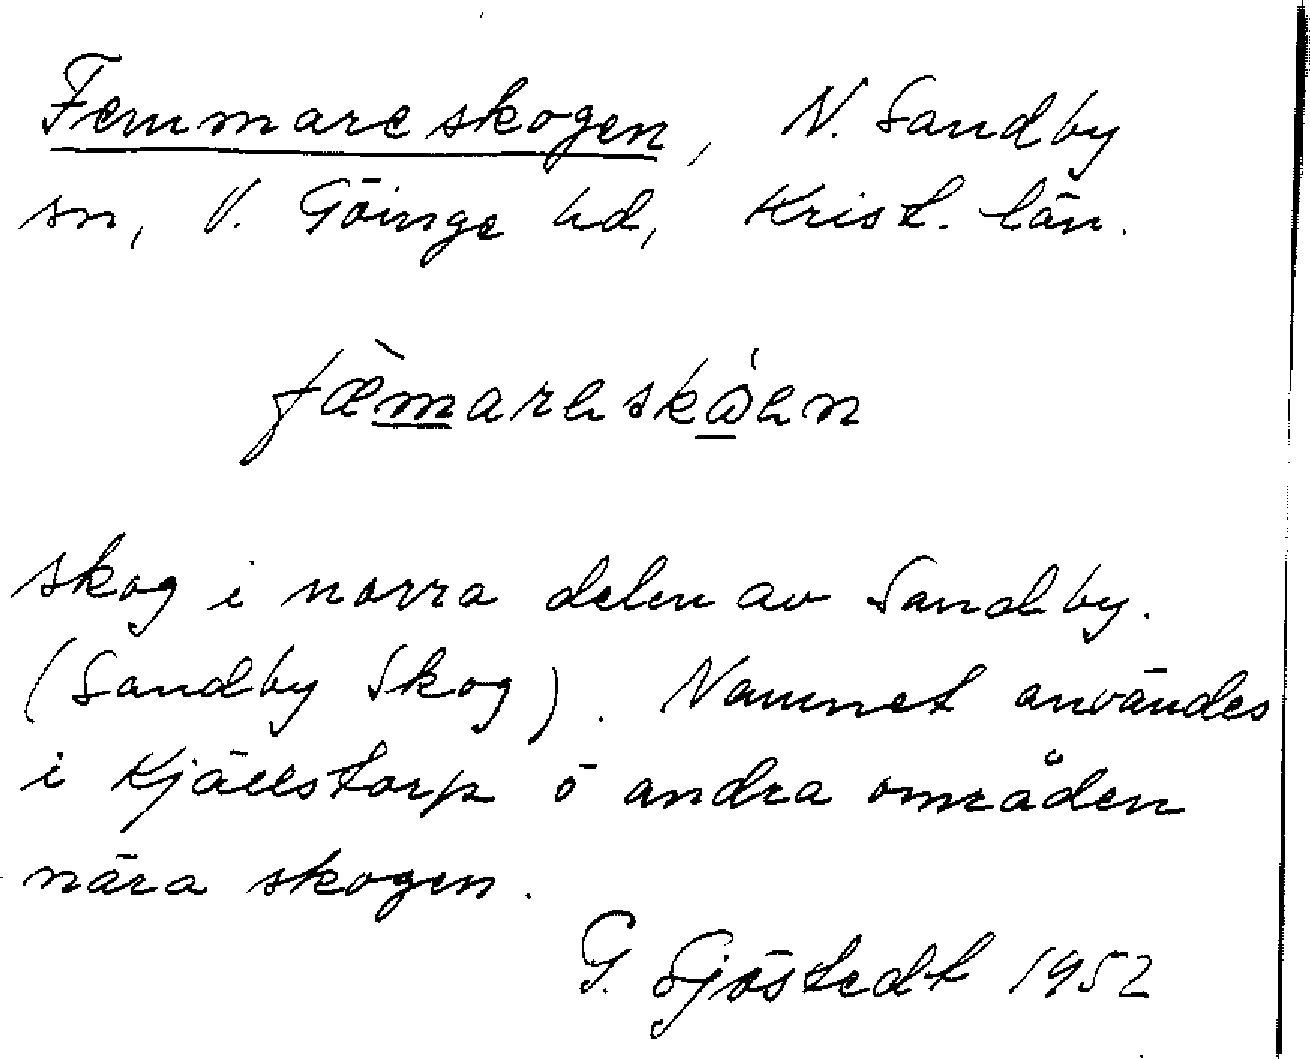 Femmareskogen, N. Sandby
sn, V. Göinge hd, Krist. län.
fæ̀marəskɷ́ən
skog i norra delen av Sandby.
(Sandby Skog). Namnet användes
i Kjällstorp o andra områden
nära skogen.
G. Sjöstedt 1952